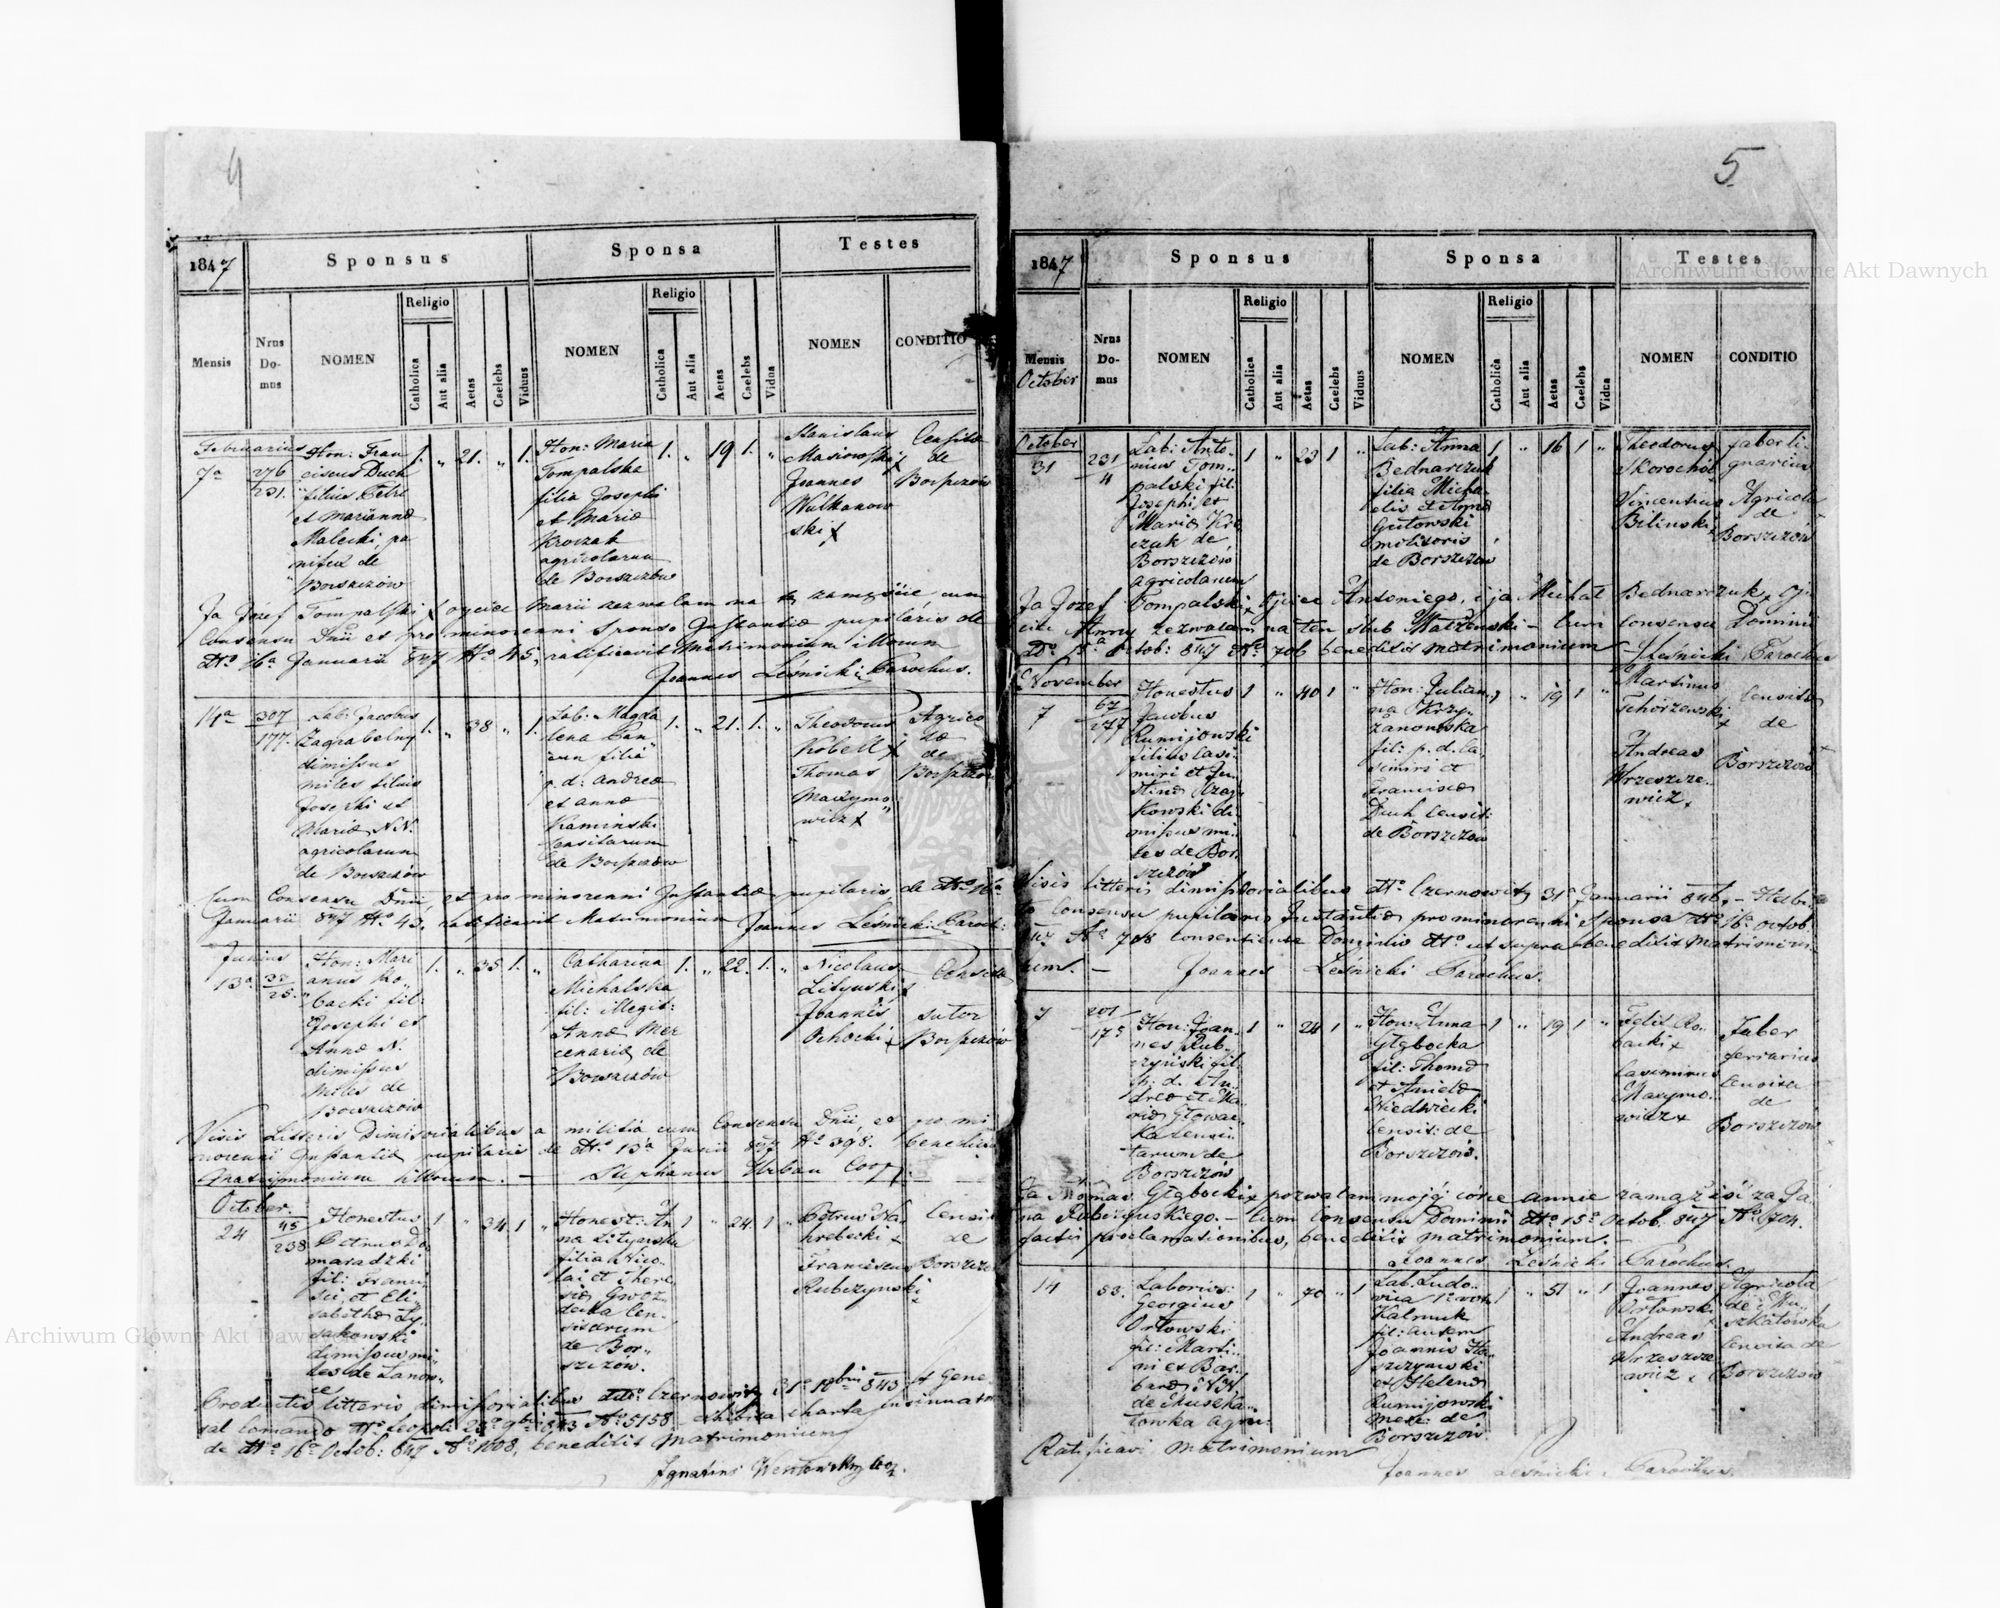 4
1847
Sponsus
Sponsa
Testes
Mensis
Nrus Domus
NOMEN
Religio
Catholica
Aut alia
Aetas
Caelebs
Viduus
NOMEN
Religio
Catholica
Aut alia
Aetas
Caelebs
Vidua
NOMEN
CONDITIO
Februarius
7a
276
231.
Hon: Fran
ciscus Duch
filius Petri
et Mariannæ
Malecki
de
Borszczów
1. " 21. " 1.
Hon: Maria
Tompalska
filia Josephi
et Mariæ
Kroczak
agricolarum
de Borszczów
1. " 19 1. "
Stanislaus
Masiowski x
Joannes
Wulkanow
ski x
Censitæ
de
Borszczów
Ja Józef Tompalski x ojciec Marii zezwalam na zamęście cum
Consensu Dnii et pro minorenni Sponso Instantiæ pupilaris de
dto 16a Januarii 847 No 45, ratificavit Matrimonium illorum
Joannes Leśnicki Parochus.
14a
307
177.
Lab: Jacobus
Zagrabelny
dimissus
miles filius
Josephi et
Mariæ N.N.
agricolarum
de Borszczów
1. " 38 " 1.
Lab: Magda
lena
filia
p. d. Andreæ
et Annæ
Kaminski
Censitarum
de Borszczów
1. " 21. 1. "
Theodorus
Kobell x
Thomas
Maxymo
wicz x
Agrico
læ
de
Borszczów
Cum Consensu Dnii et pro minorenni Instantiæ pupilaris de dto 16a
Januarii 847 No 43, ratificavit Matrimonium Joannes Leśnicki Paroch:
Junius
13a
25.
Hon: Mari
anus Ro
backi fil:
Josephi et
Annæ N.
dimissus
Miles de
Borszczów
1. " 35 1. "
Catharina
Michalska
fil: illegit:
Annæ Mer
cenariæ de
Borszczów
1. " 22. 1. "
Nicolaus
Litynski x
Joannes
Ochocki x
Censita
sutor
Borszczów
Visis Litteris Dimissorialibus a militia cum Consensu Dnii, et pro mi
norenni Instantiæ pupilaris de dto 13a Junii 847 No 398. benedixit
Matrimonium illorum. — Stephanus Urban Coop.
October.
24
45
238
Honestus
Petrus Do
maradzki
fil: Franci
sci, et Eli
sabethæ Ly
sakowski
dimissus mi
les de Lanow
ce
1 " 34. 1 "
Honest: An
na Litynska
filia Nico
lai et There
siæ Gwoz
decka Cen
sitarum
de Bor
szczów.
1 " 24. 1 "
Petrus Na
hrebecki x
Franciscus
Rubczynski x
Censitæ
de
Borszczów
Productis litteris dimissorialibus dto Czernowitz 31a 10bris 843 et Gene
ral Comando dto Leopoli 28a 9bris 843 No 5158 exhibita charta insinuat
de dto 16a Octob: 847 No 1008, benedixit Matrimonium
Ignatius
5.
1847
Sponsus
Sponsa
Testes
Mensis
October
Nrus Domus
NOMEN
Religio
Catholica
Aut alia
Aetas
Caelebs
Viduus
NOMEN
Religio
Catholica
Aut alia
Aetas
Caelebs
Vidua
NOMEN
CONDITIO
October
31
231
4
Lab: Anto
nius Tom
palski fil:
Josephi et
Mariæ Kro
czak de
Borszczów
agricolarum
1 " 23 1 "
Lab: Anna
Bednarczuk
filia Micha
elis et Annæ
Gutowski
molitoris
de Borszczów
1 " 16 1 "
Theodorus
Skorochod
Vincentius
Bilinski
faber li
gnarius
Agricola
de
Borszczów
Ja Jozef Tompalski x Ojciec Antoniego, i ja Michał Bednarczuk x Oj
ciec Anny zezwalam na ten slub Małżenski — Cum consensu Dominii
Dto 15a Octob: 847 No 706 benedixit matrimonium — JLeśnicki Parochus
November
7
67
277
Honestus
Jacobus
Rumijowski
filius Casi
miri et Ju
stinæ Czaj
kowski di
missus mi
les de Bor
szczów
1 " 40 1 "
Hon: Julian
na Krzy
żanowska
fil: p. d. Ca
simiri et
Franciscæ
Duch Censit:
de Borszczów
1 " 19 1 "
Martinus
Tchórzewski x
Andreas
Wrzeszcze
wicz x
Censitæ
de
Borszczów
Visis litteris dimissorialibus dto Czernowitz 31a Januarii 846. — Habi
to Consensu pupilaris Instantiæ pro minorenni Sponsa dto 16a octob.
847 No 708 consentiente Dominio dto ut supra benedixit Matrimoni
um. — Joannes Leśnicki Parochus.
7
201
175
Hon: Joan
nes Rub
czyński fil:
p. d. An
dreæ et Ma
riæ Głowac
ka Censi
tarum de
Borszczów
1 " 24 1 "
Hon: Anna
Głębocka
fil: Thomæ
et Anielæ
Niedzwiecki
Censit: de
Borszczów.
1 " 19 1 "
Felix Ro
backi x
Casimirus
Maxymo
wicz x
Faber
ferrarius
Censita
de
Borszczów
Ja Thomas Głębocki x pozwalam moję córce Annie zamąż iść za Ja
na Rubczynskiego. — Cum Consensu Dominii dto 15a Octob. 847 No 704.
factis proclamationibus, benedixit matrimonium. —
Joannes Leśnicki Parochus.
14
53.
Laborios:
Georgius
Orłowski
fil: Marti
ni et Bar
baræ N.N.
de Muszka
towka agri:
1 " 70 " 1
Lab: Ludo
vica 1o voto
Kalmuk
fil: autem
Joannis Sta
szczynski
et Helenæ
Rumijowski
de
Borszczów
1 " 51 " 1
Joannes
Orłowski
Andreas
Wrzeszcze
wicz x
Agricola
de Mu
szkatowka
Censita de
Borszczów
Ratificavi Matrimonium
Joannes Leśnicki Parochus.
Archiwum Główne Akt Dawnych
Archiwum Główne Akt Dawnych